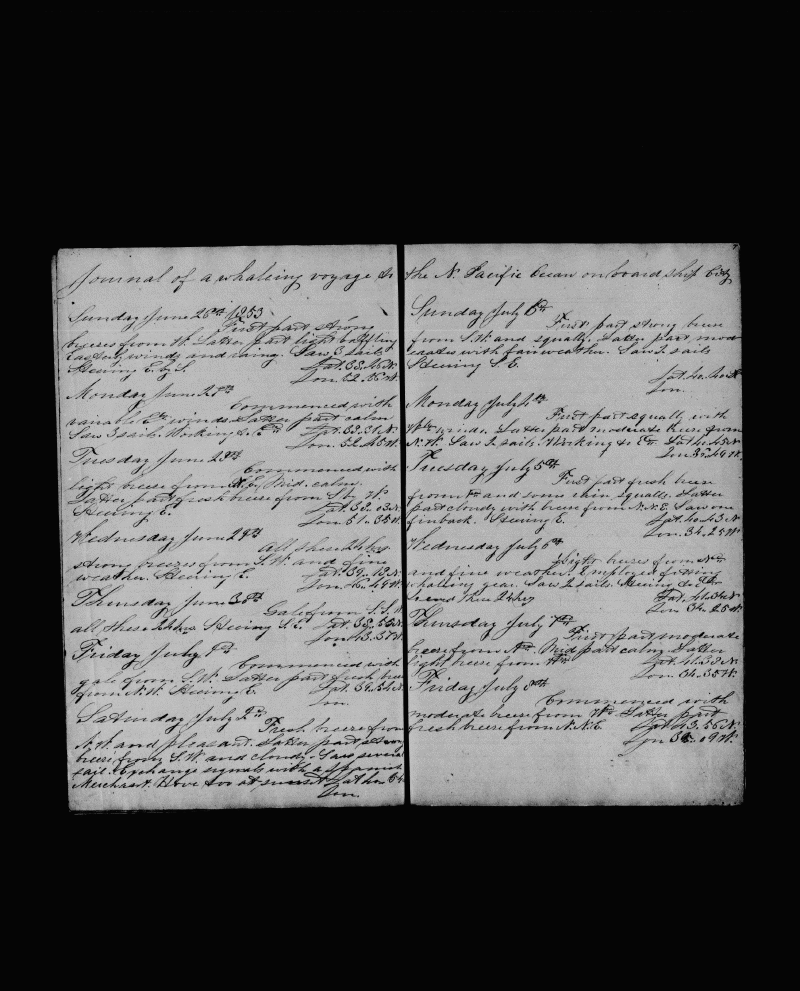 Journal of a whaleing voyage to
Sunday June 26th 1853
First part strong
breeses from W. Latter part light baffling
Easterly winds and rainy. Saw 3 sails
Steering E. by S. Lat. 38.46 N.
Lon. 52.
Monday June 27th
Commenced with
variable winds Latter part calm
Saw 3 sail. Working E. Lat. 38.31 N.
Lon. 52.45 W.
Tuesday June 28th
Commenced with
light breese from Mid. calm.
Latter part fresh breese from S. by W.
Steering E. Lat. 38.03 N.
Lon. 51.35 W.
Wednesday June 29th
All these 24 hrs
strong breeses from S.W. and fine
weather. Steering E. Lat. 39.13 N.
Lon. 46.49 W.
Thursday June 30th
Gale from S.S.W.
all these 24 hrs Steering S.E. Lat. 38.
Lon. 43.37 W.
Friday July 1st
Commenced with
gale from S.W. Latter part fresh breese
from N.W. Steering E. Lat. 39.54 N.
Lon.
Saturday July 2nd
Fresh breese from
N.W. and pleasant. Latter part strong
breese from S.W. and cloudy. Saw several
sail. Exchange signals with a Spanish
Merchant. Hove too at sunset Lat
Lon.
the N. Pacific Ocean onboard ship City
Sunday July
First part strong breese
from S.W. and squally. Latter part mod
erates with fair weather. Saw 2 sails
Steering S.E.
Lat. 40.40 N.
Lon.
Monday July 4th
First part squally with
winds. Latter part moderate breese from
N.W. Saw 2 sails. Working to Lat. 40.45 N.
Lon. 35.49 W.
Tuesday July 5th
First part fresh breese
from and some rain squalls. Latter
part cloudy with breese from N.N.E. Saw one
finback. Steering E. Lat. 40.43 N.
Lon. 34.25 W.
Wednesday July 6th
Light breeses from
and fine weather. Employed fitting
whaling gear. Saw 2 sails. Steering
to end these 24 hrs Lat. 41.34 N.
Lon. 34.25 W.
Thursday July 7th
First part moderate
breese from Mid part calm. Latter
light breese from Lat. 41.38 N.
Lon. 34.35 W.
Friday July 8th
Commenced with
moderate breese from Latter part
fresh breese from N.N.E. Lat. 43.56 N.
Lon. 19 W.